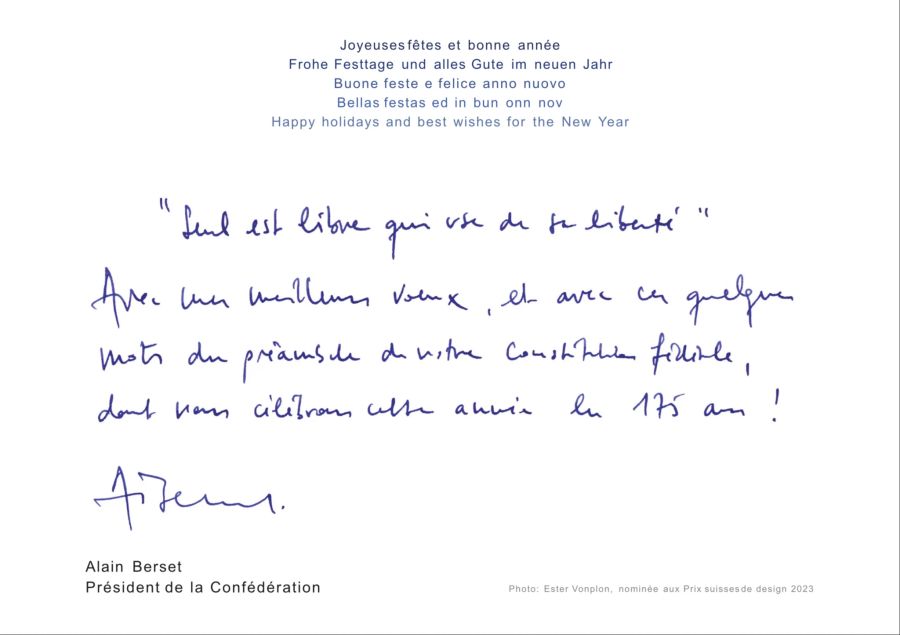 Joyeuses fêtes et bonne année
Frohe Festtage und alles Gute im neuen Jahr
Buone feste e felice anno nuovo
Bellas festas ed in bun onn nov
Happy holidays and best wishes for the New Year
"Seul est libre qui use de sa liberté"
Avec mes meilleurs vœux, et avec ces quelques
mots du préambule de notre Constitution fédérale,
dont nous célébrons cette année les 175 ans !
Alain Berset
Président de la Confédération
Photo: Ester Vonplon, nominée aux Prix suisses de design 2023